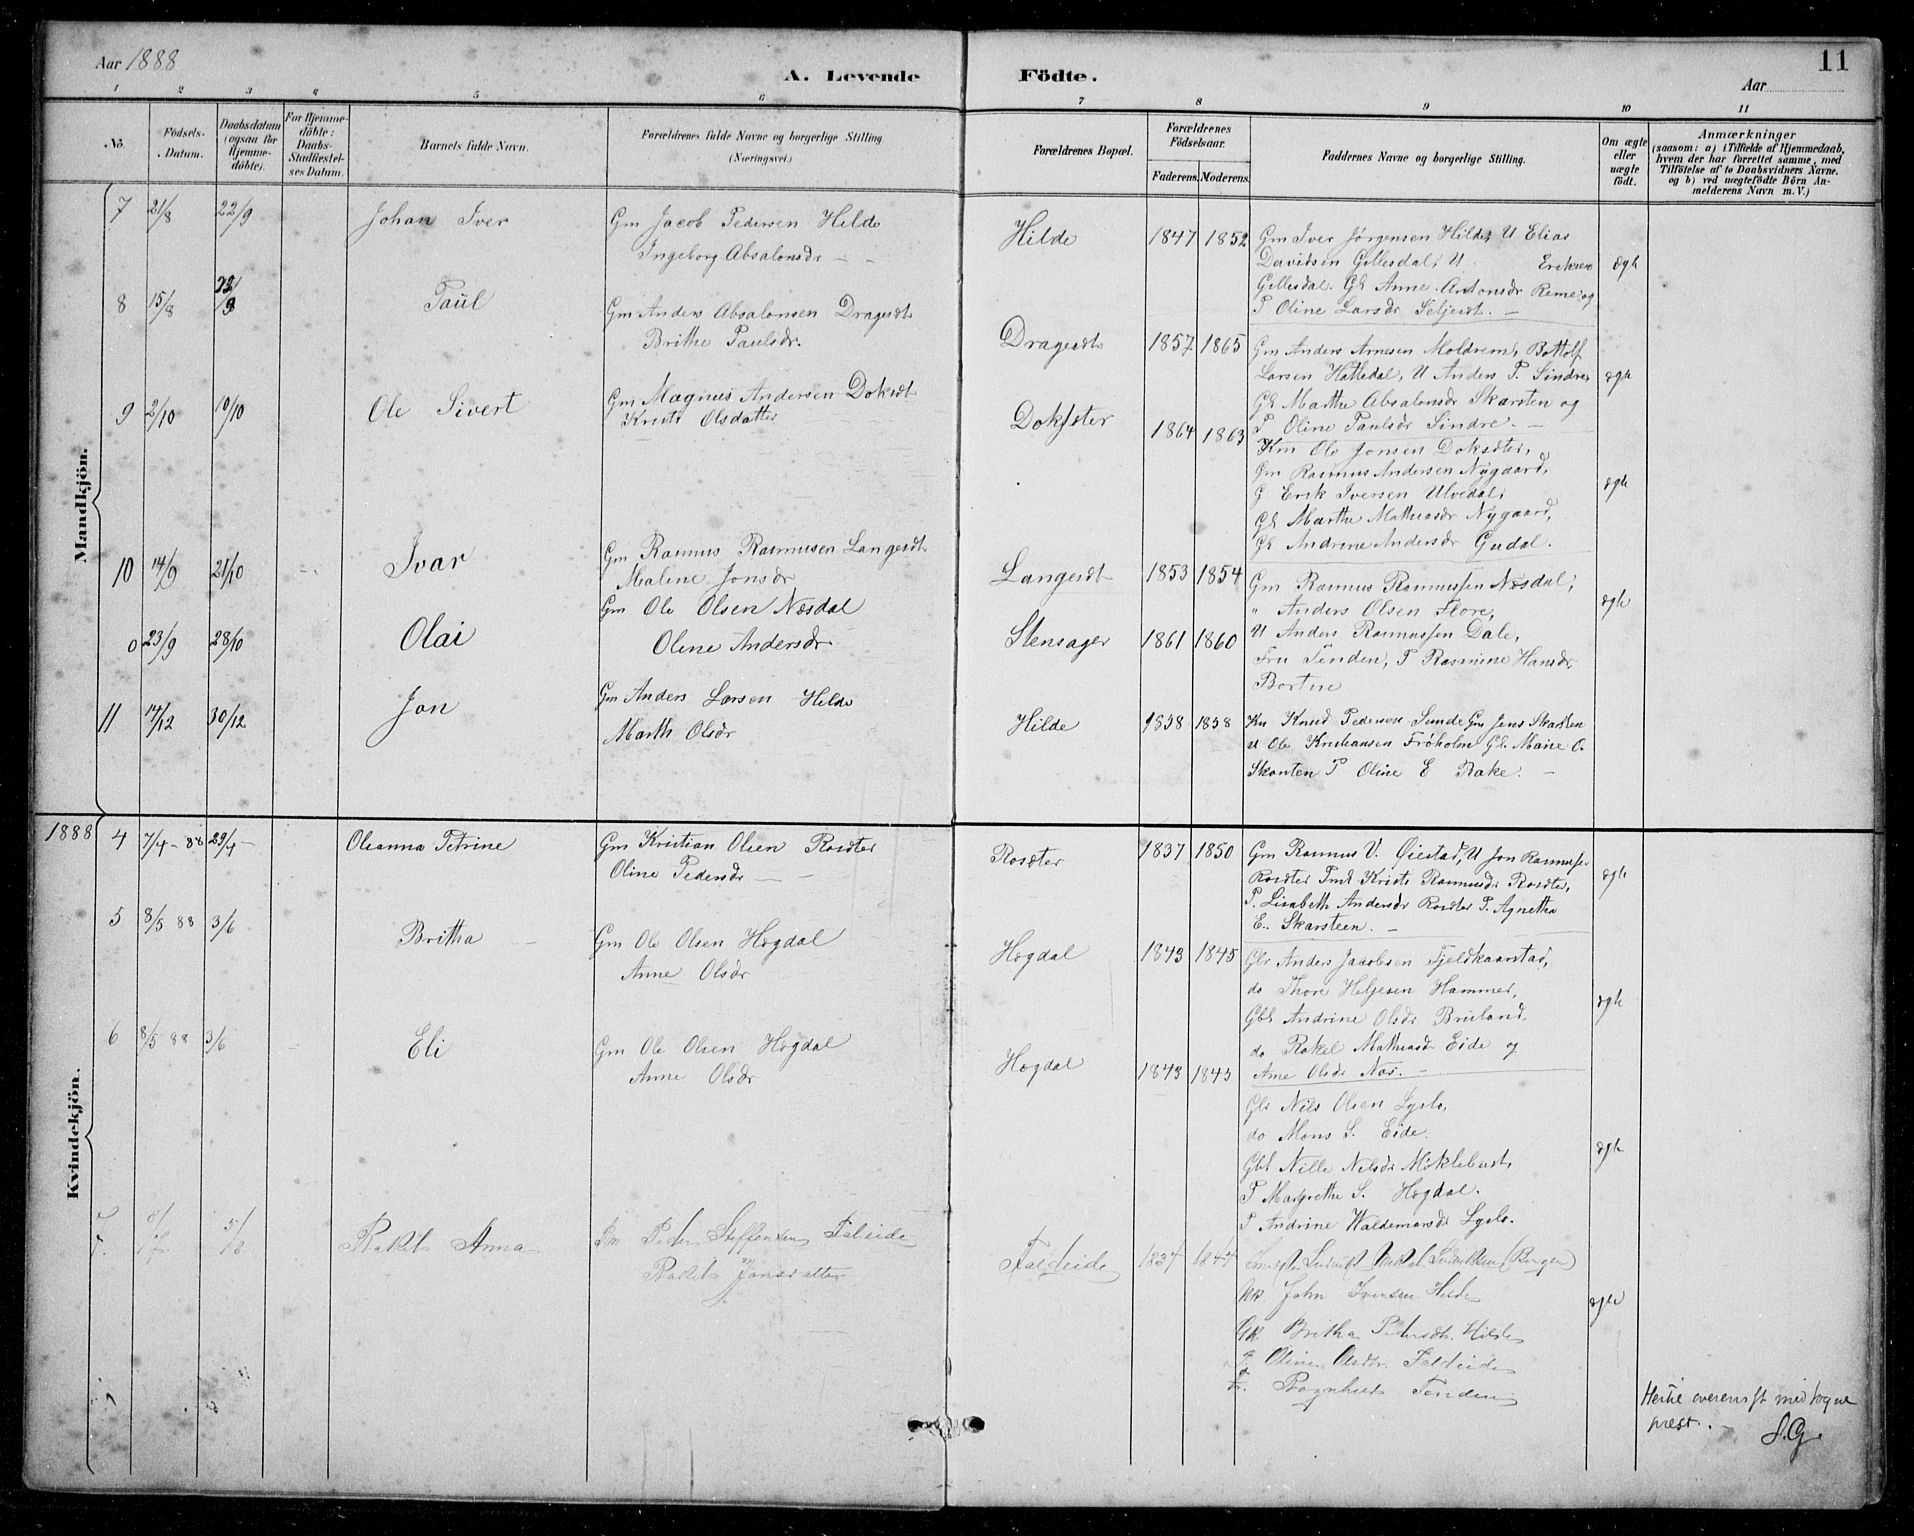 Aar 1888
A. Levende
Födte.
Aar
11
1 2 3 4 5 6 7 8 9 10 11
No.
Födsels-Datum.
Daabsdatum (ogsaa for Hjemmedöbte).
For Hjemmedöbte: Daabs-Stadfæstelses Datum.
Barnets fulde Navn.
Forældrenes fulde Navne og borgerlige Stilling. (Næringsvei.)
Forældrenes Bopæl.
Forældrenes Födselsaar.
Faderens. Moderens.
Faddernes Navne og borgerlige Stilling.
Om ægte eller uægte födt.
Anmærkninger
(saasom: a) i Tilfælde af Hjemmedaab, hvem der har forrettet samme, med Tilföielse af to Daabsvidners Navne. og b) ved uægtefödte Börn Anmelderens Navn m. V.)
Mandkjön.
7 21/8 22/9 Johan Iver Gm Jacob Pedersen Hilde
Ingeborg Absalonsdr - -
Hilde 1847 1852 Gm Iver Jørgensen Hilde, U Elias
Davidsen Gillesdal, U Eriksen
Gillesdal. Gk Anne Antonsdr Reme og
P Oline Larsdr Seljesdt. -
ægte
8 15/8 Paul Gm Anders Absalonsen Dragesdt
Brithe Paulsdr.
Dragesdt 1857 1865 Gm Anders Arnesen Moldrem, Bottolf
Larsen Hattedal, U Anders P. Sindre,
Gk Marthe Absalonsdr Skarsten og
P Oline Paulsdr Sindre. -
ægte
9 2/10 10/10 Ole Sivert Gm Magnus Andersen Doksdt
Kristi Olsdatter
Dokseter 1864 1863 Km Ole Jonsen Doksdter,
Gm Rasmus Andersen Nygaard,
G Erik Iversen Ulvedal,
Gk Marthe Mathiasdr Nygaard,
Gk Andrine Andersdr Gudal.
ægte
10 14/9 21/10 Ivar Gm Rasmus Rasmusen Langesdt
Malene Jonsdr
Langesdt 1853 1854 Gm Rasmus Rasmussen Næsdal,
" Anders Olsen Flore,
U Anders Rasmussen Dale,
Fru Tenden, P Rasmine Hansdr
Bortne
ægte
0 23/9 28/10 Olai Gm Ole Olsen Næsdal
Oline Andersdr
Stensager 1861 1860
11 14/12 30/12 Jon Gm Anders Larsen Hilde
Marth Olsdr
Hilde 1838 1838 Km Knud Pedersen Sunde Gm Jens Skarsten
U Ole Kristiansen Frøholm Gk. Marie O.
Skarsten P Oline E Rake. -
Kvindekjön.
1888 4 7/4 - 88 29/4 - Oleanna Petrine Gm Kristian Olsen Rosdter
Oline Pedersdr - -
Rosdter 1837 1850 Gm Rasmus V. Øiestad, U Jon Rasmuss.
Rosdter Kristi Rasmusdr Rosdter,
P. Lisabeth Andersdr Rosdter P. Agnetha
E. Skarsteen. -
ægte
5 8/5 88 3/6 Britha - Gm Ole Olsen Hogdal
Anne Olsdr
Hogdal 1843 1845 Gbr Anders Jacobsen Fjeldkaarstad,
do Thore Heljesen Hammer,
Gbk Andrine Olsdr Bruland,
do Rakel Mathiasdr Eide og
Ane Olsdr Nos. -
ægte
6 8/5 88 3/6 Eli Gm Ole Olsen Hogdal
Anne Olsdr
Hogdal 1843 1843 Gbr Nils Olsen Lyslo,
do Mons S. Eide.
Gbk Nille Nilsdr Myklebust,
P Margrethe S. Hogdal.
P Andrine Waldemarsdr Lyslo.
ægte
7 Rakel Anna Peder Steffensen Faleide
Rakel Jonsdatter
Faleide 1834
John Iversen Hilde
Gk. Britha Pedersdtr. Hilde
P Oline Olsdtr. Faleide
Ragnhild Tenden
ægte
Heftet overensst med sogne
præst. - S.G.